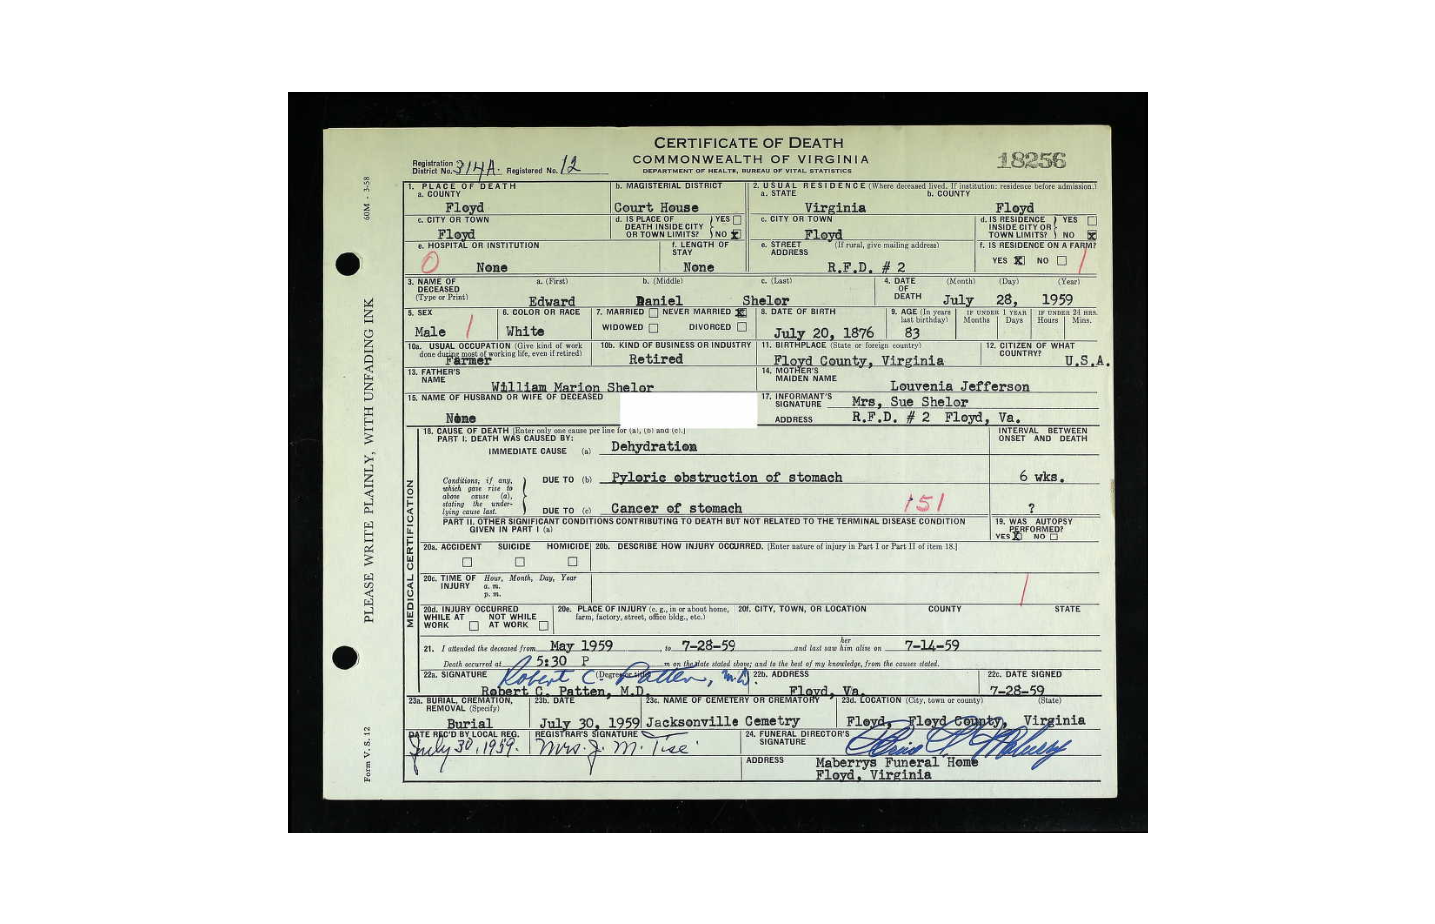 CERTIFICATE OF DEATH
COMMONWEALTH OF VIRGINIA
DEPARTMENT OF HEALTH, BUREAU OF VITAL STATISTICS
18256
Registration District No. 314A. Registered No. 12
60M - 3-58
PLEASE WRITE PLAINLY, WITH UNFADING INK
Form V. S. 12
1. PLACE OF DEATH
a. COUNTY
Floyd
b. MAGISTERIAL DISTRICT
Court House
2. USUAL RESIDENCE (Where deceased lived. If institution: residence before admission.)
a. STATE
Virginia
b. COUNTY
Floyd
c. CITY OR TOWN
Floyd
d. IS PLACE OF DEATH INSIDE CITY OR TOWN LIMITS? YES NO X
c. CITY OR TOWN
Floyd
d. IS RESIDENCE INSIDE CITY OR TOWN LIMITS? YES NO X
e. HOSPITAL OR INSTITUTION
0 None
f. LENGTH OF STAY
None
e. STREET ADDRESS (If rural, give mailing address)
R.F.D. # 2
f. IS RESIDENCE ON A FARM?
YES X NO 1
3. NAME OF DECEASED (Type or Print)
a. (First) b. (Middle) c. (Last)
Edward Daniel Shelor
4. DATE OF DEATH (Month) (Day) (Year)
July 28, 1959
5. SEX
Male 1
6. COLOR OR RACE
White
7. MARRIED NEVER MARRIED X
WIDOWED DIVORCED
8. DATE OF BIRTH
July 20, 1876
9. AGE (In years last birthday)
83
IF UNDER 1 YEAR
Months Days
IF UNDER 24 HRS.
Hours Mins.
10a. USUAL OCCUPATION (Give kind of work done during most of working life, even if retired)
Farmer
10b. KIND OF BUSINESS OR INDUSTRY
Retired
11. BIRTHPLACE (State or foreign country)
Floyd County, Virginia
12. CITIZEN OF WHAT COUNTRY?
U.S.A.
13. FATHER'S NAME
William Marion Shelor
14. MOTHER'S MAIDEN NAME
Louvenia Jefferson
15. NAME OF HUSBAND OR WIFE OF DECEASED
None
17. INFORMANT'S SIGNATURE Mrs, Sue Shelor
ADDRESS R.F.D. # 2 Floyd, Va.
MEDICAL CERTIFICATION
18. CAUSE OF DEATH [Enter only one cause per line for (a), (b) and (c).]
PART I. DEATH WAS CAUSED BY:
INTERVAL BETWEEN ONSET AND DEATH
IMMEDIATE CAUSE (a) Dehydration
Conditions, if any, which gave rise to above cause (a), stating the underlying cause last.
DUE TO (b) Pyloric obstruction of stomach 6 wks.
DUE TO (c) Cancer of stomach 151 ?
PART II. OTHER SIGNIFICANT CONDITIONS CONTRIBUTING TO DEATH BUT NOT RELATED TO THE TERMINAL DISEASE CONDITION GIVEN IN PART I (a)
19. WAS AUTOPSY PERFORMED?
YES X NO
20a. ACCIDENT SUICIDE HOMICIDE
20b. DESCRIBE HOW INJURY OCCURRED. [Enter nature of injury in Part I or Part II of item 18.]
20c. TIME OF INJURY Hour, Month, Day, Year
a. m.
p. m.
1
20d. INJURY OCCURRED
WHILE AT WORK NOT WHILE AT WORK
20e. PLACE OF INJURY (e. g., in or about home, farm, factory, street, office bldg., etc.)
20f. CITY, TOWN, OR LOCATION COUNTY STATE
21. I attended the deceased from May 1959, to 7-28-59 and last saw her him alive on 7-14-59
Death occurred at 5:30 P m on the date stated above; and to the best of my knowledge, from the causes stated.
22a. SIGNATURE (Degree or title)
Robert C. Patten, M.D.
Robert C. Patten, M.D.
22b. ADDRESS
Floyd, Va.
22c. DATE SIGNED
7-28-59
23a. BURIAL, CREMATION, REMOVAL (Specify)
Burial
23b. DATE
July 30, 1959
23c. NAME OF CEMETERY OR CREMATORY
Jacksonville Cemetry
23d. LOCATION (City, town or county) (State)
Floyd, Floyd County, Virginia
DATE REC'D BY LOCAL REG.
July 30, 1959.
REGISTRAR'S SIGNATURE
Mrs. J. M. Tise
24. FUNERAL DIRECTOR'S SIGNATURE
ADDRESS Maberrys Funeral Home
Floyd, Virginia